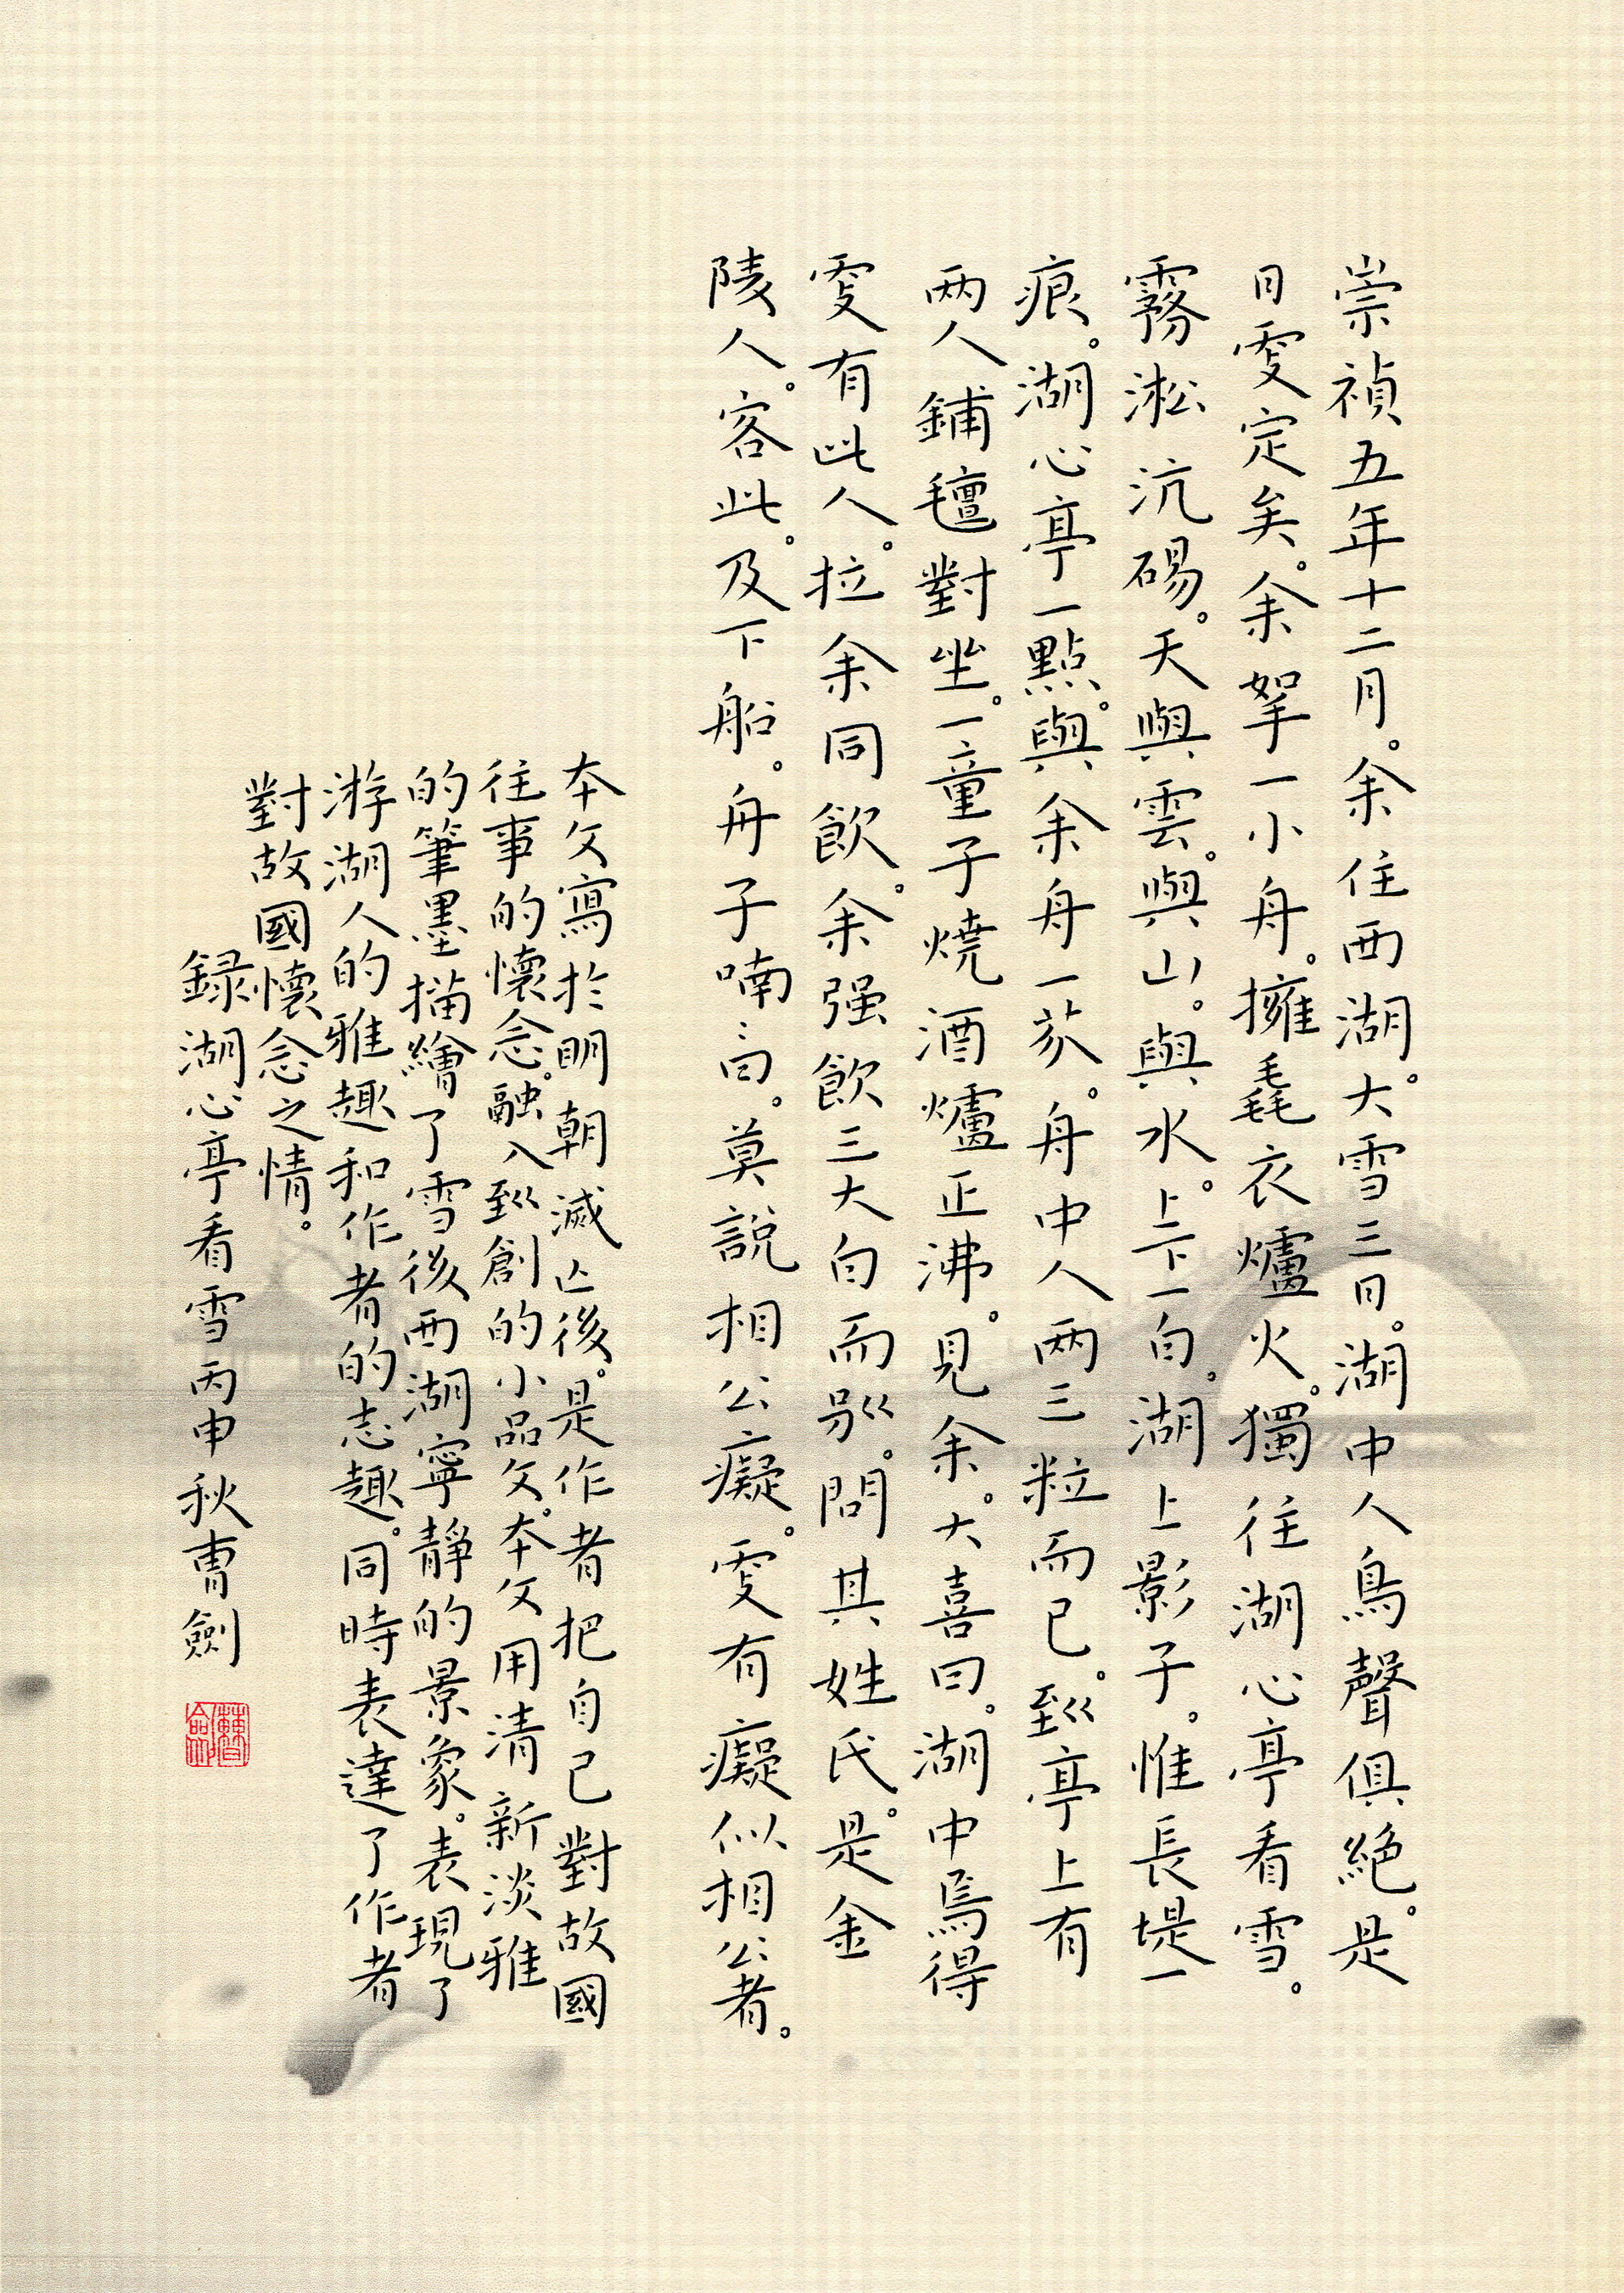 崇禎五年十二月。余住西湖。大雪三日。湖中人鳥聲俱絕。是
日更定矣。余挐一小舟。擁毳衣爐火。獨往湖心亭看雪。
霧淞沆碭。天與雲。與山。與水。上下一白。湖上影子。惟長堤一
痕。湖心亭一點。與余舟一芥。舟中人两三粒而已。到亭上有
两人鋪氈對坐。一童子燒酒爐正沸。見余。大喜曰。湖中焉得
更有此人。拉余同飲。余强飲三大白而別。問其姓氏。是金
陵人。客此。及下船。舟子喃〻曰。莫說相公癡。更有癡似相公者。
本文寫於明朝滅亡後。是作者把自己對故國
往事的懷念。融入到創的小品文。本文用清新淡雅
的筆墨描繪了雪後西湖寧靜的景象。表現了
游湖人的雅趣和作者的志趣。同時表達了作者
對故國懷念之情。
録湖心亭看雪丙申秋曹劍